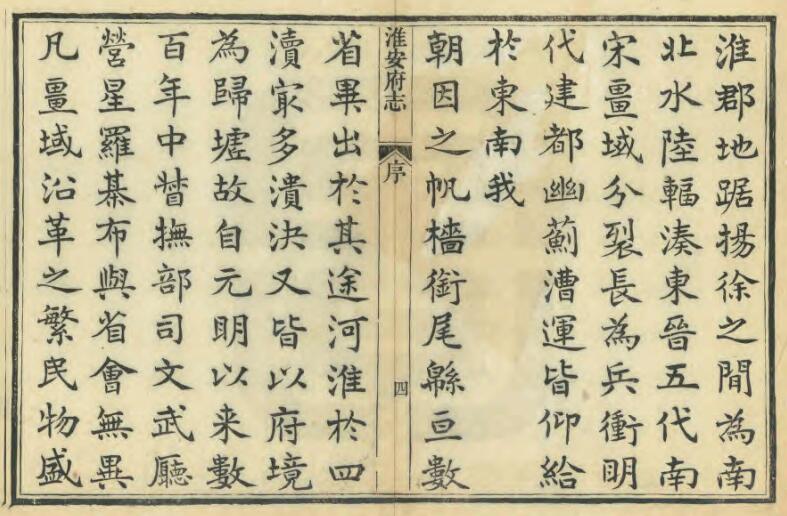 淮郡地踞揚徐之閒為南
北水陸輻湊東晉五代南
宋畺域分裂長為兵衝明
代建都幽薊漕運皆仰給
於東南我
朝因之帆檣銜尾緜亘數
淮安府志
序
四
省畢出於其途河淮於四
瀆冣多潰決又皆以府境
為歸墟故自元明以来數
百年中督撫部司文武廳
營星羅棊布與省會無異
凡畺域沿革之繁民物盛